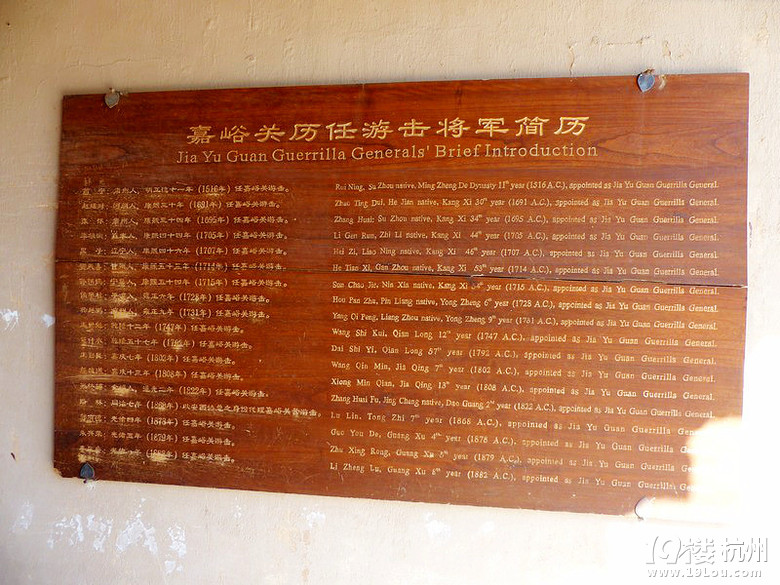 嘉峪关历任游击将军简历
Jia Yu Guan Guerrilla Generals' Brief Introduction
明正德十一年（1516年）任嘉峪关游击。
康熙三十年（1691年）任嘉峪关游击。
康熙三十四年（1695年）任嘉峪关游击。
康熙四十四年（1705年）任嘉峪关游击。
康熙四十六年（1707年）任嘉峪关游击。
康熙五十三年（1714年）任嘉峪关游击。
康熙五十四年（1715年）任嘉峪关游击。
雍正六年（1728年）任嘉峪关游击。
雍正九年（1731年）任嘉峪关游击。
乾隆十二年（1747年）任嘉峪关游击。
乾隆五十七年（1792年）任嘉峪关游击。
嘉庆七年（1802年）任嘉峪关游击。
嘉庆十三年（1808年）任嘉峪关游击。
道光二年（1822年）任嘉峪关游击。
同治七年（1868年）
光绪四年（1878年）任嘉峪关游击。
光绪五年（1879年）任嘉峪关游击。
任嘉峪关游击。
Rui Ning, Su Zhou native, Ming Zheng De Dynasty 11th year (1516 A.C.), appointed as Jia Yu Guan Guerrilla General.
Zhao Ting Dui, He Jian native, Kang Xi 30th year (1691 A.C.), appointed as Jia Yu Guan Guerrilla General.
Zhang Huai, Su Zhou native, Kang Xi 34th year (1695 A.C.), appointed as Jia Yu Guan Guerrilla General.
Li Gen Run, Zhi Li native, Kang Xi 44th year (1705 A.C.), appointed as Jia Yu Guan Guerrilla General.
Hei Zi, Liao Ning native, Kang Xi 46th year (1707 A.C.), appointed as Jia Yu Guan Guerrilla General.
He Tian Xi, Gan Zhou native, Kang Xi 53th year (1714 A.C.), appointed as Jia Yu Guan Guerrilla General.
Sun Chao Jie, Nin Xia native, Kang Xi 54th year (1715 A.C.), appointed as Jia Yu Guan Guerrilla General.
Hou Pan Zhe, Pin Liang native, Yong Zheng 6th year (1728 A.C.), appointed as Jia Yu Guan Guerrilla General.
Yang Qi Peng, Liang Zhou native, Yong Zheng 9th year (1731 A.C.), appointed as Jia Yu Guan Guerrilla General.
Wang Shi Kui, Qian Long 12th year (1747 A.C.), appointed as Jia Yu Guan Guerrilla General.
Dai Shi Yi, Qian Long 57th year (1792 A.C.), appointed as Jia Yu Guan Guerrilla General.
Wang Qin Min, Jia Qing 7th year (1802 A.C.), appointed as Jia Yu Guan Guerrilla General.
Xiong Min Qian, Jia Qing 13th year (1808 A.C.), appointed as Jia Yu Guan Guerrilla General.
Zhang Huai Fu, Jing Chang native, Dao Guang 2nd year (1822 A.C.), appointed as Jia Yu Guan Guerrilla General.
Lu Lin, Tong Zhi 7th year (1868 A.C.), appointed as Jia Yu Guan Guerrilla General.
Guo You De, Guang Xu 4th year (1878 A.C.), appointed as Jia Yu Guan Guerrilla General.
Zhu Xing Rong, Guang Xu 5th year (1879 A.C.), appointed as Jia Yu Guan Guerrilla General.
Li Zheng Lu, Guang Xu 8th year (1882 A.C.), appointed as Jia Yu Guan Guerrilla
19楼 杭州
www.19lou.com